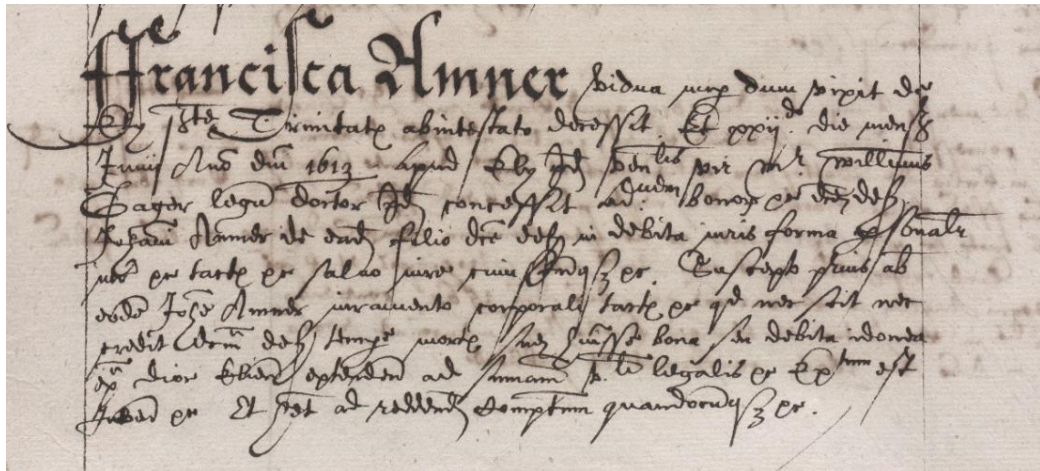 ffrancisca Amner vidua nup dum vixit de
Ely Ste Trinitatis abintestato decessit Et xxijd. die mens
Junij Ano dni 1613 Apud Ely ven.lis vir mr. Willimus
Gager legu doctor concessit ad bonor etc
Johani Amner de ead filio dce def in debita iuris forma psonalr
etc salvo iure cuiuscunq etc Suscepto prius ab
eode Johe Amner iuramento corporali tact etc qd nec scit nec
credit def tempe mortis sue huisse bona seu debita idonea
extra dioc Elien extenden ad sumam legalis etc Exp est
Inven etc Et ad reddend Comptum quandocunq etc.